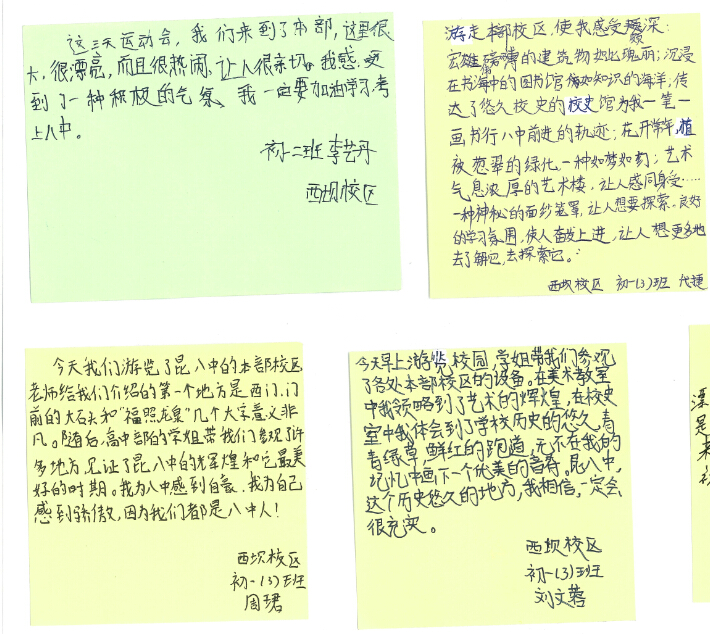 这三天运动会，我们来到了本部，这里很
大，很漂亮，而且很热闹，让人很亲切。我感受
到了一种积极的气氛、我一定要加油学习，考
上八中。
初一二班 李艺丹
西坝校区
游走本部校区，使我感受颇深：
宏雄磅礴的建筑物如此瑰丽；沉浸
在书海中的图书馆犹如知识的海洋，传
达了悠久校史的校史馆为我一笔一
画书行八中前进的轨迹；花开常年，植
被葱翠的绿化，一种如梦如幻；艺术
气息浓厚的艺术楼，让人感同身受……
一种神秘的面纱笼罩，让人想要探索。良好
的学习氛围，使人奋发上进，让人想更多地
去了解它，去探索它。
西坝校区 初一(3)班 代捷
今天我们游览了昆八中的本部校区，
老师给我们介绍的第一个地方是西门，门
前的大石头和“福照龙泉”几个大字意义非
凡。随后，高中部的学姐带我们参观了许
多地方，见证了昆八中的光辉煌和它最美
好的时期。我为八中感到自豪，我为自己
感到骄傲，因为我们都是八中人！
西坝校区
初一(3)班
周珺
今天早上游览校园，学姐带我们参观
了各处本部校区的设备。在美术教室
中我领略到了艺术的辉煌，在校史
室中我体会到了学校历史的悠久，青
青绿草，鲜红的跑道，无不在我的
记忆中画下一个优美的音符。昆八中，
这个历史悠久的地方，我相信，一定会
很充实。
西坝校区
初一(3)班
刘文蓉